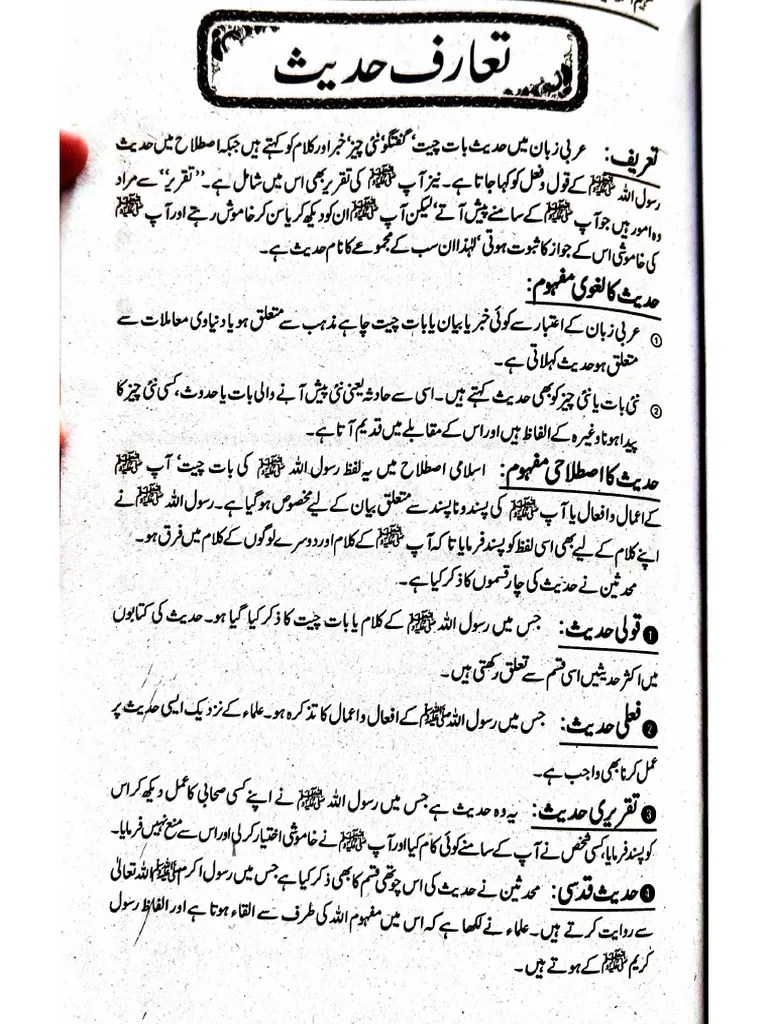 تعارف حدیث
تعریف: عربی زبان میں حدیث بات چیت‘ گفتگو‘ نئی چیز‘ خبر اور کلام کو کہتے ہیں جبکہ اصطلاح میں حدیث
رسول اللہ ﷺ کے قول وفعل کو کہا جاتا ہے۔ نیز آپ ﷺ کی تقریر بھی اس میں شامل ہے۔ ’’تقریر‘‘ سے مراد
وہ امور ہیں جو آپ ﷺ کے سامنے پیش آتے‘ لیکن آپ ﷺ ان کو دیکھ کر یا سن کر خاموش رہتے اور آپ ﷺ
کی خاموشی اس کے جواز کا ثبوت ہوتی‘ لہٰذا ان سب کے مجموعے کا نام حدیث ہے۔
حدیث کا لغوی مفہوم:
① عربی زبان کے اعتبار سے کوئی خبر یا بیان یا بات چیت چاہے مذہب سے متعلق ہو یا دنیاوی معاملات سے
متعلق ہو حدیث کہلاتی ہے۔
② نئی بات یا نئی چیز کو بھی حدیث کہتے ہیں۔ اسی سے حادثہ یعنی نئی پیش آنے والی بات یا حدوث، کسی نئی چیز کا
پیدا ہونا وغیرہ کے الفاظ ہیں اور اس کے مقابلے میں قدیم آتا ہے۔
حدیث کا اصطلاحی مفہوم: اسلامی اصطلاح میں یہ لفظ رسول اللہ ﷺ کی بات چیت‘ آپ ﷺ
کے اعمال وافعال یا آپ ﷺ کی پسند وناپسند سے متعلق بیان کے لیے مخصوص ہوگیا ہے۔ رسول اللہ ﷺ نے
اپنے کلام کے لیے بھی اسی لفظ کو پسند فرمایا تاکہ آپ ﷺ کے کلام اور دوسرے لوگوں کے کلام میں فرق ہو۔
محدثین نے حدیث کی چار قسموں کا ذکر کیا ہے۔
❶ قولی حدیث: جس میں رسول اللہ ﷺ کے کلام یا بات چیت کا ذکر کیا گیا ہو۔ حدیث کی کتابوں
میں اکثر حدیثیں اسی قسم سے تعلق رکھتی ہیں۔
❷ فعلی حدیث: جس میں رسول اللہ ﷺ کے افعال واعمال کا تذکرہ ہو۔ علماء کے نزدیک ایسی حدیث پر
عمل کرنا بھی واجب ہے۔
❸ تقریری حدیث: یہ وہ حدیث ہے جس میں رسول اللہ ﷺ نے اپنے کسی صحابی کا عمل دیکھ کر اس
کو پسند فرمایا، کسی شخص نے آپ کے سامنے کوئی کام کیا اور آپ ﷺ نے خاموشی اختیار کرلی اور اس سے منع نہیں فرمایا۔
❹ حدیث قدسی: محدثین نے حدیث کی اس چوتھی قسم کا بھی ذکر کیا ہے جس میں رسول اکرم ﷺ اللہ تعالیٰ
سے روایت کرتے ہیں۔ علماء نے لکھا ہے کہ اس میں مفہوم اللہ کی طرف سے القاء ہوتا ہے اور الفاظ رسول
کریم ﷺ کے ہوتے ہیں۔